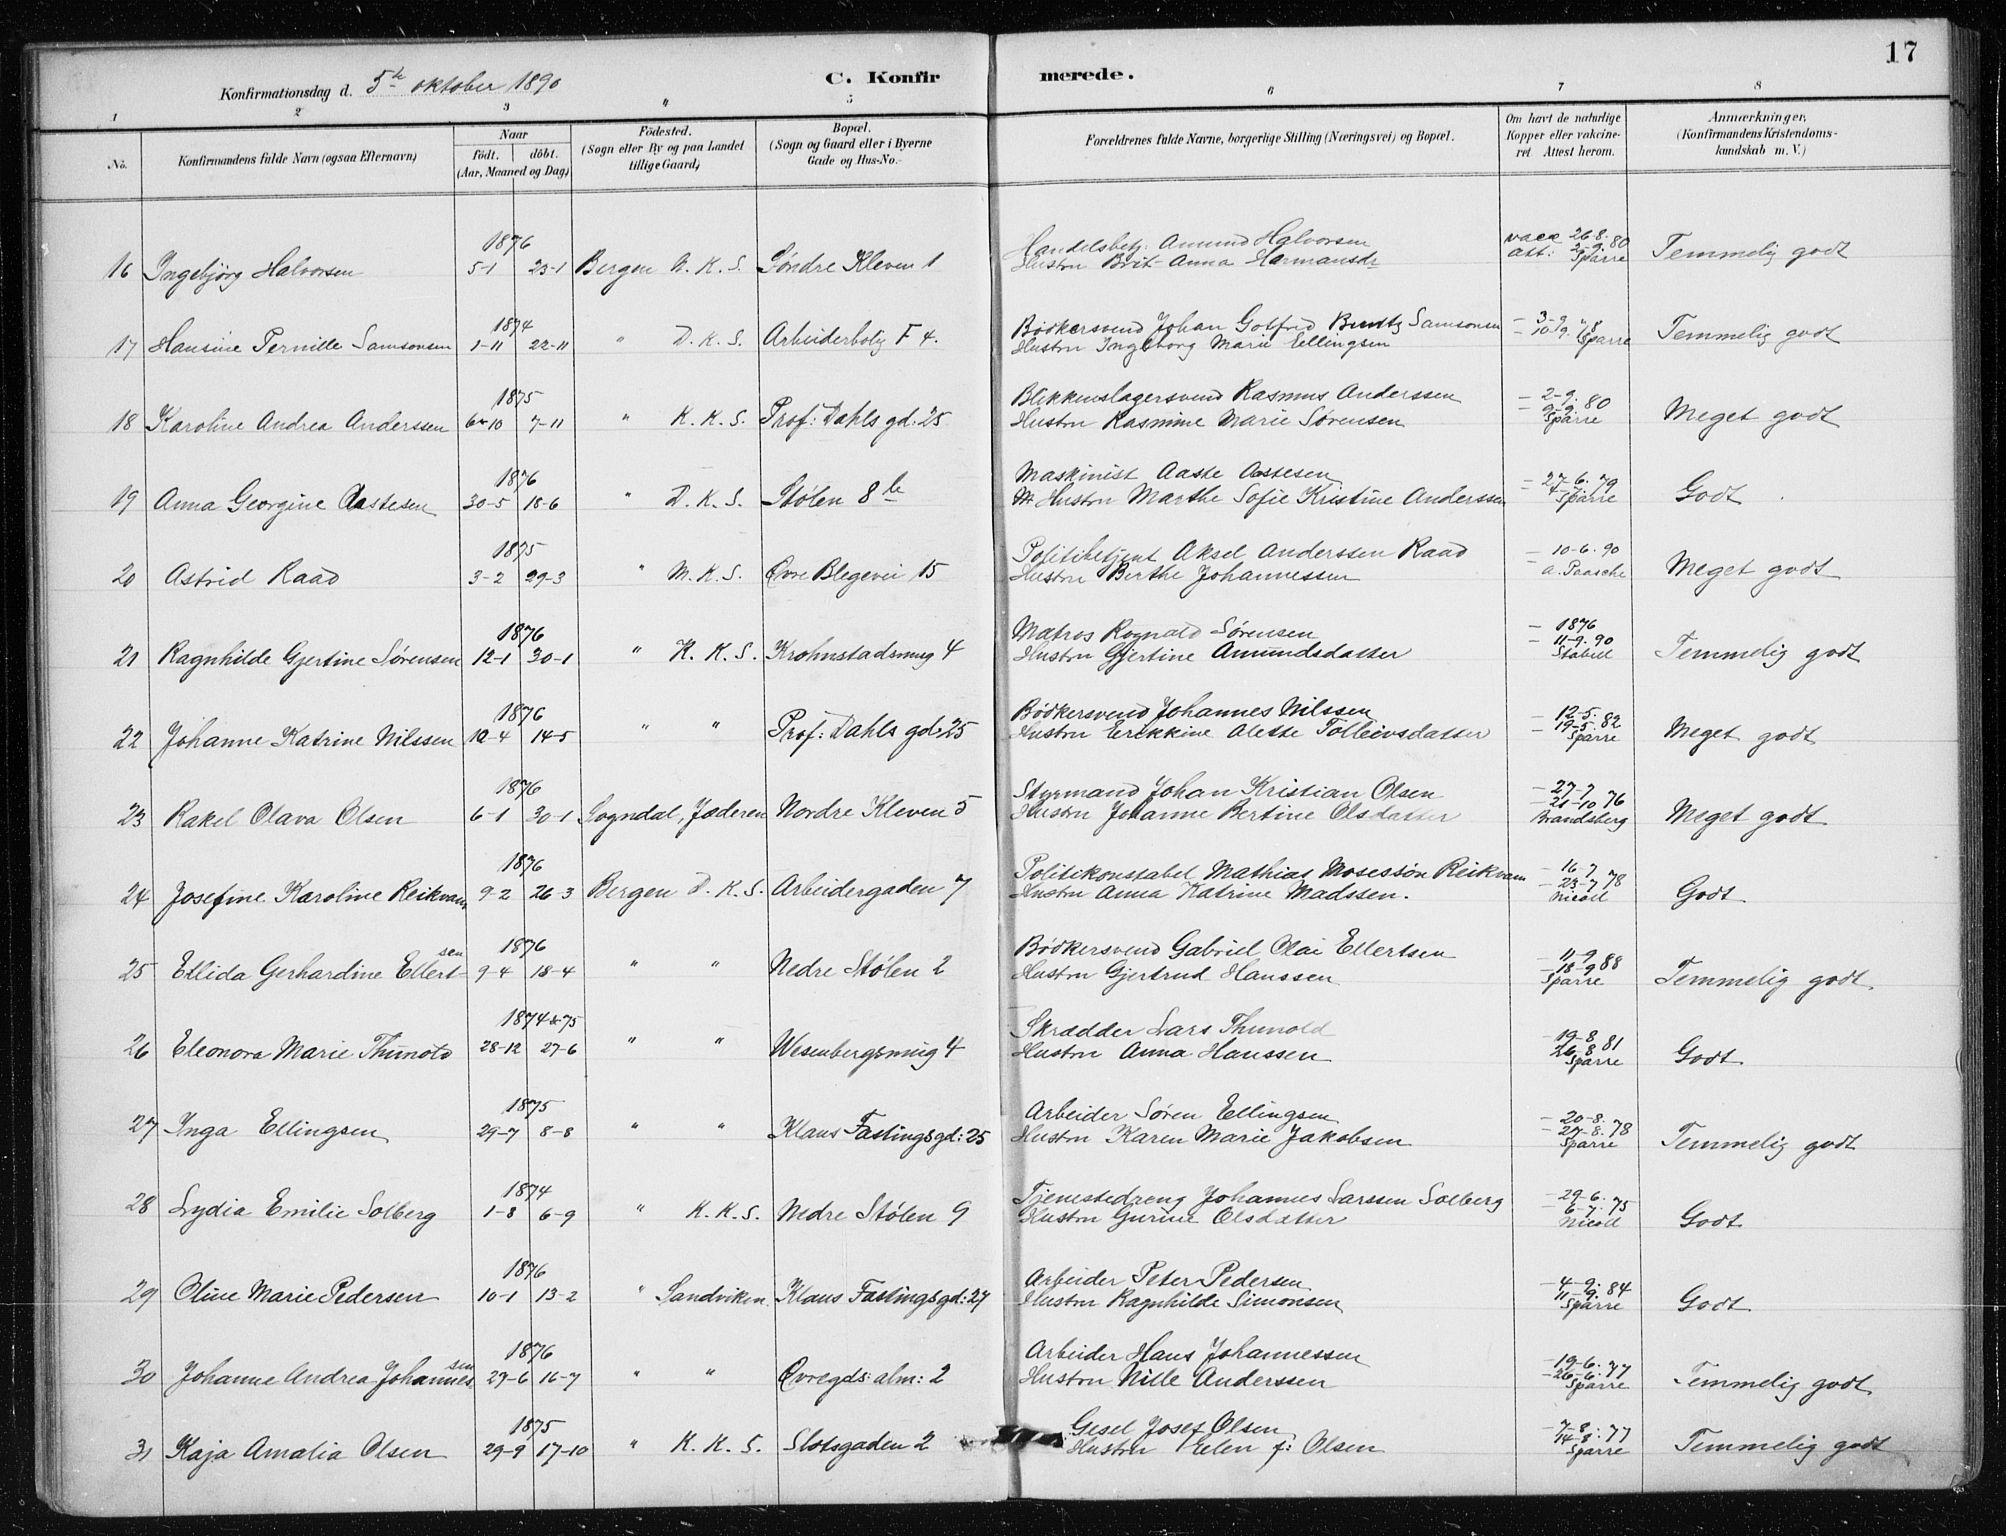 17
Konfirmationsdag d. 5te oktober 1890
C. Konfirmerede.
1 2 3 " 5 6 7 8
No.
Konfirmandens fulde Navn (ogsaa Efternavn)
Naar
födt. döbt.
(Aar, Maaned og Dag)
Födested.
(Sogn eller By og paa Landet
tillige Gaard)
Bopæl.
(Sogn og Gaard eller i Byerne
Gade og Hus-No.
Forældrenes fulde Navne, borgerlige Stilling (Næringsvei) og Bopæl.
Om havt de naturlige
Kopper eller vakcine-
ret Attest herom.
Anmærkninger,
(Konfirmandens Kristendoms-
kundskab m. V.)
1876 Handelsbetj: Amund Halvorsen vacc 26-8-80
16 Ingebjörg Halvorsen 5-1 23-1 Bergen N. K. S. Søndre Kleven 1 Hustru Brit-Anna Hermansdr att: 2-9 Sparre Temmelig godt
1874 Bödkersvend Johan Gotfred Bentz Samsonsen - 3-9
17 Hansine Pernille Samsonsen 1-11 22-11 " D. K. S. Arbeiderbolg F 4. Hustru Ingeborg Marie Ellingsen - 10-9 78 Sparre Temmelig godt
1875 Blikkenslagersvend Rasmus Anderssen - 2-9
18 Karoline Andrea Anderssen 6-10 7-11 " K. K. S. Prof: Dahls gd: 25 Hustru Rasmine Marie Sørensen - 9-9 80 Sparre Meget godt
1876 Maskinist Aaste Aastesen - 27-6 79
19 Anna Georgine Aastesen 30-5 18-6 " D. K. S. Stølen 8 b Hustru Marthe Sofie Kristine Anderssen - 4-7 Sparre Godt
1875 Politibetjent Aksel Anderssen Raad - 10-6-90
20 Astrid Raad 3-2 29-3 " M. K. S. Øvre Blegevei 15 Hustru Berthe Johannessen - A. Paasche Meget godt
1876 Matros Rognald Sørensen - 1876
21 Ragnhilde Gjertine Sørensen 12-1 30-1 " K. K. S. Krohnstadsmug 4 Hustru Gjertine Amundsdatter - 11-9.90 Stabell Temmelig godt
1876 Bödkersvend Johannes Nilssen - 12-5
22 Johanne Katrine Nilssen 12-4 14-5 " " Prof: Dahls gd: 25 Hustru Erikkine Alette Tolleivsdatter - 19-5 82 Sparre Meget godt
1876 Styrmand Johan Kristian Olsen - 27-7
23 Rakel Olava Olsen 6-1 30-1 Sogndal, Jæderen Nordre Kleven 5 Hustru Johanne Bertine Olsdatter - 21-10 76 Brandsberg Meget godt
1876 Politikonstabel Mathias Mosessön Reikvam - 16-7
24 Josefine Karoline Reikvam 9-2 26-3 Bergen D. K. S. Arbeidergaden 7 Hustru Anna Katrine Madssen. - 23-7 78 Nicoll Godt
1876 Bödkersvend Gabriel Olai Ellertsen - 11-9
25 Ellida Gerhardine Ellertsen 9-4 18-4 " " Nedre Stølen 2 Hustru Gjertrud Hanssen - 18-9 88 Sparre Temmelig godt
1874 & 75 Skrædder Lars Thunold 19-8
26 Eleonora Marie Thunold 28-12 27-6 " " Wesenbergsmug 4 Hustru Anna Hanssen 26-8 81 Sparre Godt
1875 Arbeider Sören Ellingsen - 20-8
27 Inga Ellingsen 29-7 8-8 " " Klaus Fastingsgd: 25 Hustru Karen Marie Jakobsen - 27-8.78 Sparre Temmelig godt
1874 Tjenestedreng Johannes Larssen Solberg - 29-6.
28 Lydia Emilie Solberg 1-8 6-9 " K. K. S. Nedre Stølen 9 Hustru Gurine Olsdatter - 6-7. 75 Nicoll Godt
1876 Arbeider Peter Pedersen - 4-9
29 Oline Marie Pedersen 10-1 13-2 " Sandviken Klaus Fastingsgd: 27 Hustru Ragnhilde Simonsen 11-9. 84 Sparre Godt
1876 Arbeider Hans Johannessen - 19-6.
30 Johanna Andrea Johannessen 27-6 16-7 " " Øvregds: alm: 2 Hustru Nille Anderssen - 26-6. 77 Sparre Temmelig godt
1875 Gesel Josef Olsen - 7-8
31 Kaja Amalia Olsen 29-9 17-10 " K. K. S. Slotsgaden 2 Hustru Elen f: Olsen - 14-8. 77 Sparre Temmelig godt